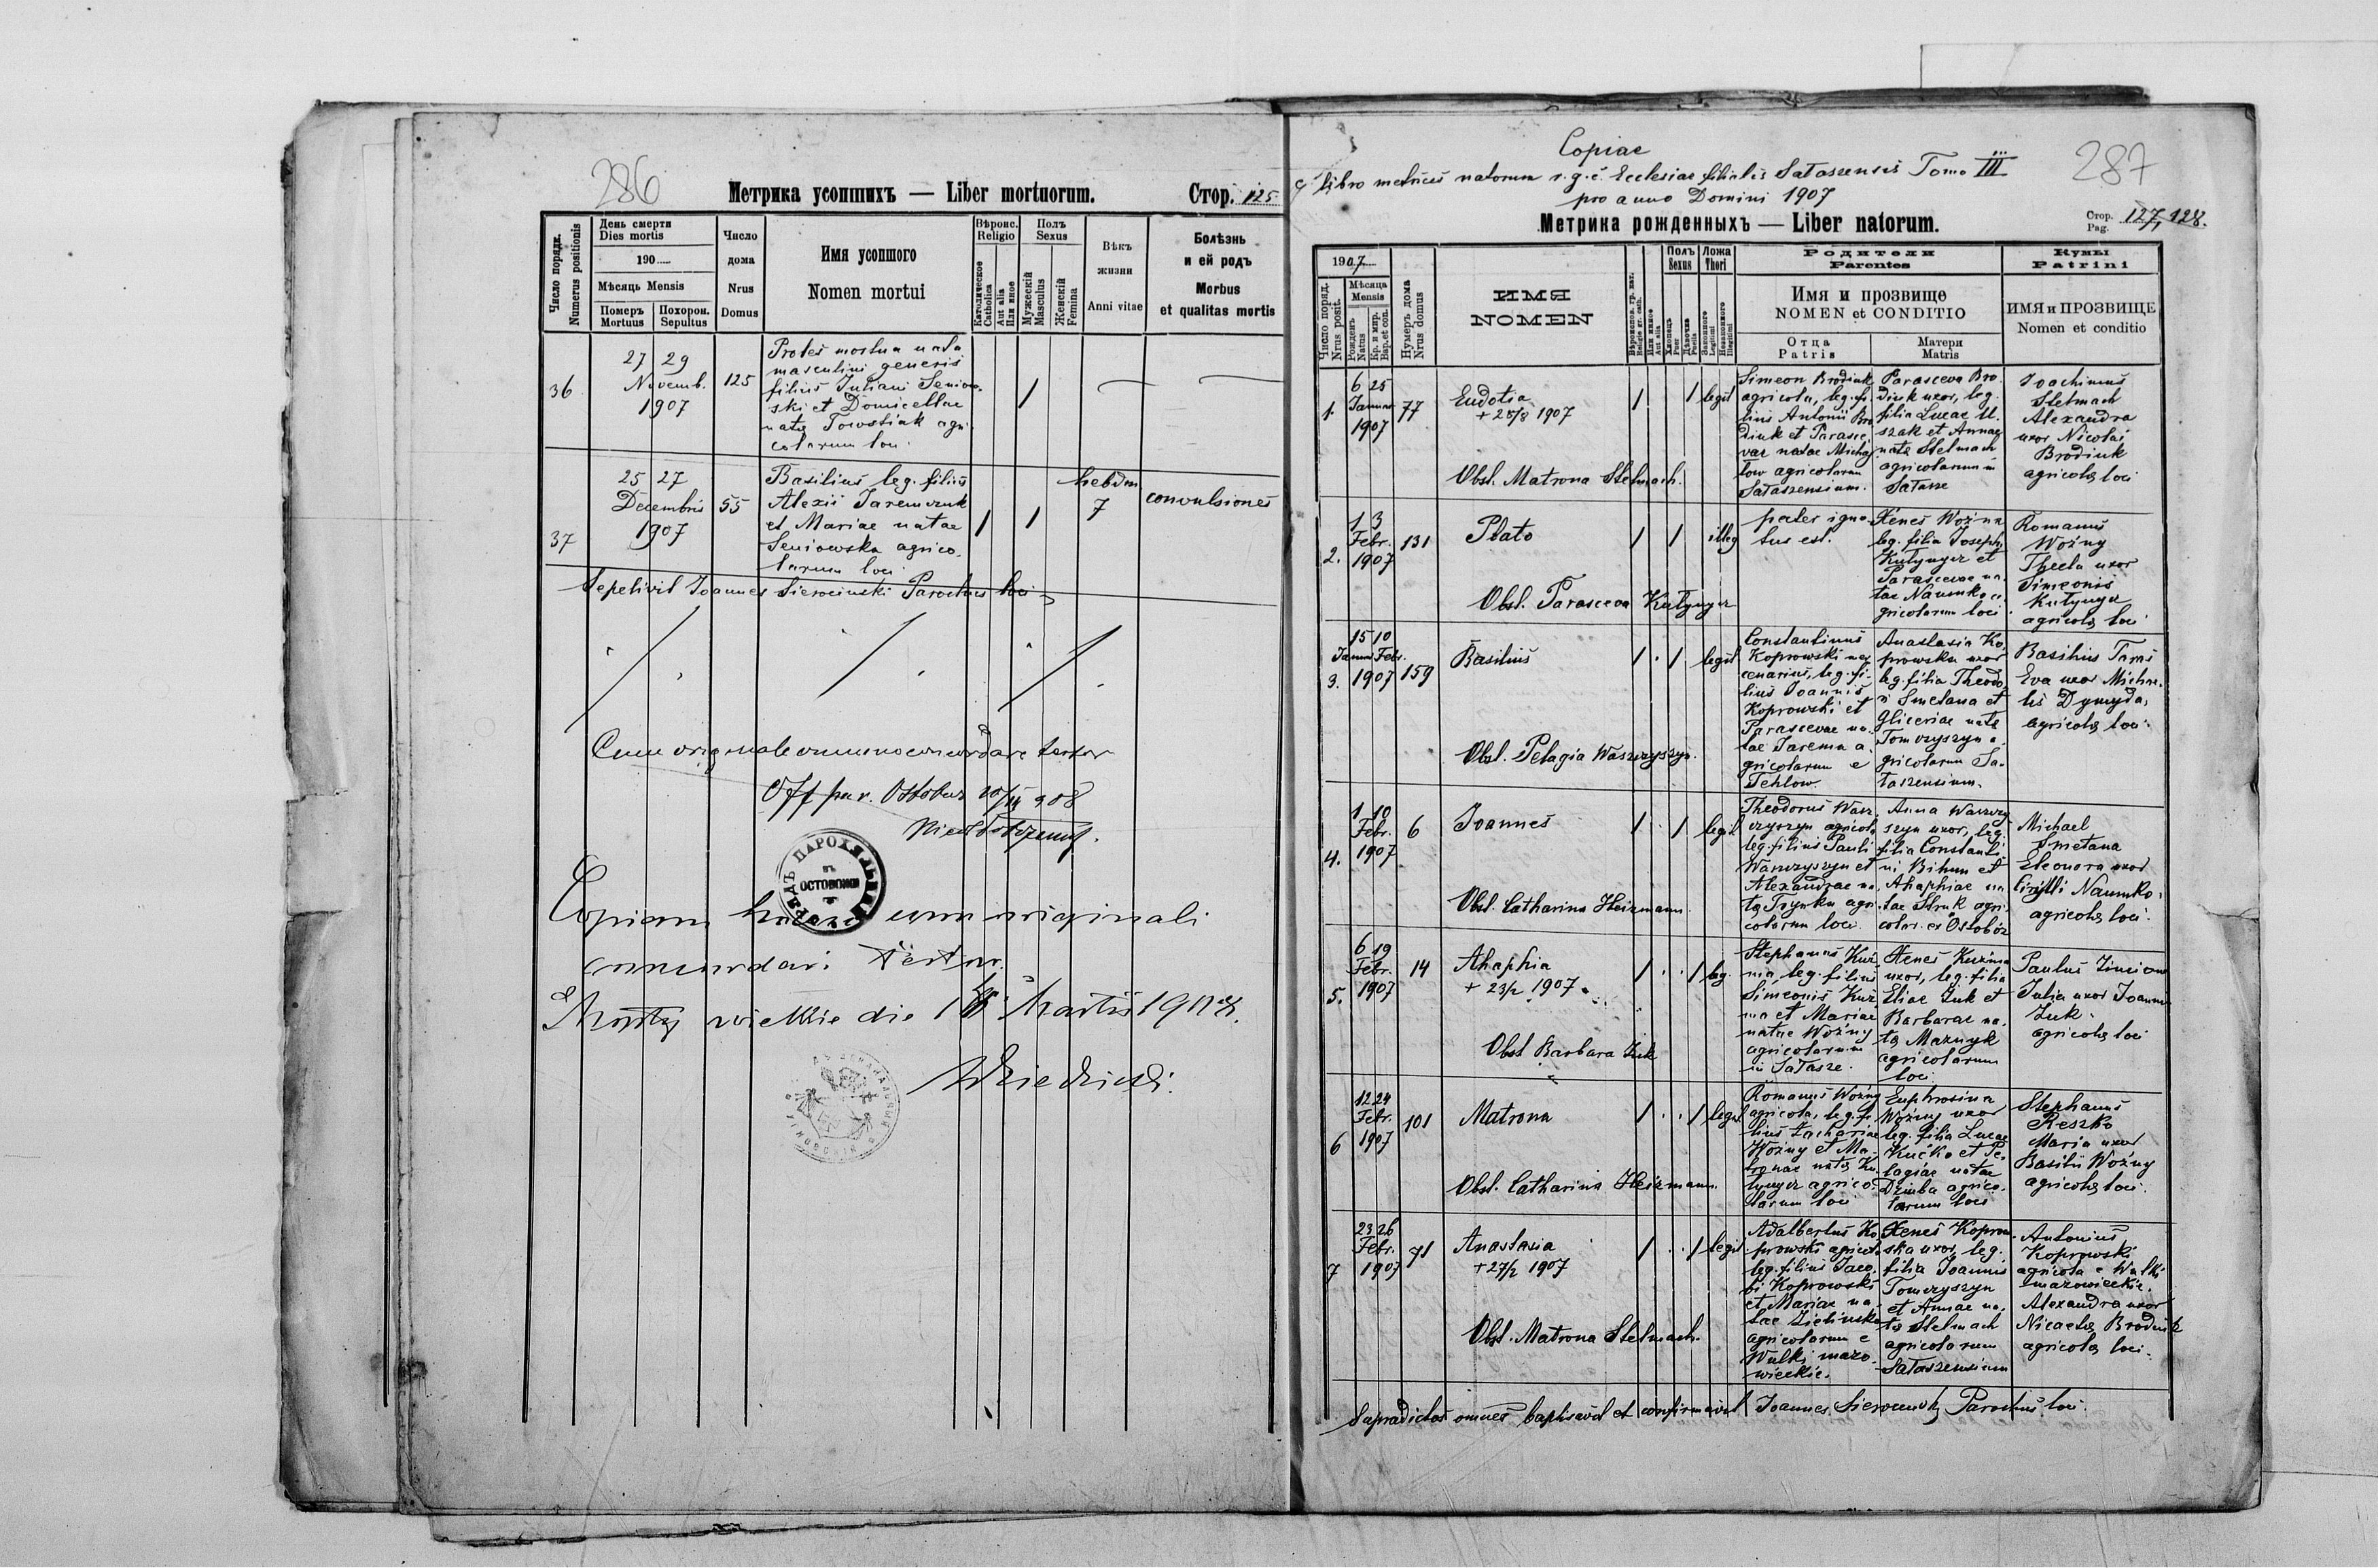 286
Метрика усопшихъ — Liber mortuorum.
Стор. 125
Число порядк.
Numerus positionis
День смерти
Dies mortis
190
Мѣсяць Mensis
Померъ
Mortuus
Похорон.
Sepultus
Число
дома
Nrus
Domus
Имя усопшого
Nomen mortui
Вѣроис.
Religio
Католическое
Catholica
Aut alia
Или иное
Полъ
Sexus
Мужескій
Masculus
Женскій
Femina
Вѣкъ
жизни
Anni vitae
Болѣзнь
и ей родъ
Morbus
et qualitas mortis
36
27 29
Novemb.
1907
125
Proles mortua nata
masculini generis
filius Juliani Seniow-
ski et Domicellae
natae Towstiak agri
colarum loci
37
25 27
Decembris
1907
55
Basilius leg. filius
Alexii Jaremczuk
et Mariae natae
Seniowska agrico-
larum loci
hebdm
7
convulsiones
Sepelivit Joannes Sierociński Parochus loci
Cum originale omnino concordare testor
Off par. Ostobuz 908
ПАРОХІАЛЬНЫЙ УРЯДЪ
въ
ОСТОБОЖИ
Copiam hancce cum originali
concordari testor.
Mosty wielkie die Martii 1908.
Copiae
e libro metrices natorum r. g. c. Ecclesiae filialis Sałaszensis Tomo III
pro anno Domini 1907
287
Метрика рожденныхъ — Liber natorum.
Стор.
Pag. 127, 128.
Число поряд.
Nrus posit.
1907
Мѣсяца
Mensis
Рожденъ
Natus
Кр. и мир.
Bap. et con.
Нумеръ дома
Nrus domus
ИМЯ
NOMEN
Вѣроиспов. гр. кат.
Religio gr. cath.
Или инное
Aut alia
Полъ
Sexus
Хлопець
Puer
Дѣвочка
Puella
Ложа
Thori
Законного
Legitimi
Незаконного
Illegitimi
Родители
Parentes
Имя и прозвище
NOMEN et CONDITIO
Отца
Patris
Матери
Matris
Кумы
Patrini
ИМЯ и ПРОЗВИЩЕ
Nomen et conditio
1.
6 25
Januar
1907
77
Eudotia
+ 28/8 1907
Obst. Matrona Stelmach.
legit
Simeon Brodiuk
agricola, leg. fi-
lius Antonii Bro
diuk et Parasce
vae natae Micha
low agricolarum
Sałaszensium.
Parasceva Bro
diuk uxor, leg.
filia Lucae U.
szak et Annae
natae Stelmach
agricolarum in
Sałasze
Joachimus
Stelmach
Alexandra
uxor Nicolai
Brodiuk
agricolae loci
2.
1 3
Febr.
1907
131
Plato
Obst. Parasceva Kułynycz
illeg
pater igno-
tus est.
Xenes Woźna
leg. filia Josephi
Kułynycz et
Parascevae na
tae Naumko a
gricolarum loci
Romanus
Woźny
Thecla uxor
Simeonis
Kułynycz
agricolae loci
3.
15 10
Januar Febr.
1907
159
Basilius
Obst. Pelagia Waszczyszyn.
legit
Constantinus
Koprowski mer
cenarius, leg. fi-
lius Joannis
Koprowski et
Parascevae na-
tae Jarema a
gricolarum e
Tehlow
Anastasia Ko
prowska uxor
leg. filia Theodo
ri Smetana et
Gliceriae natae
Tomczyszyn a
gricolarum Sa-
łaszensium.
Basilius Taras
Eva uxor Michae
lis Dymyda,
agricolae loci.
4.
1 10
Febr.
1907
6
Joannes
Obst. Catharina Heizmann
legit
Theodorus Wasz
czyszyn agricola
leg. filius Pauli
Waszczyszyn et
Alexandrae na
tae Hrynku agri
colarum loci.
Anna Waszczy
szyn uxor, leg.
filia Constanti
ni Bihun et
Ahaphiae na
tae Struk agri
colar. ex Ostobóz
Michael
Smetana
Eleonora uxor
Cirylli Naumko,
agricolae loci.
5.
6 19
Febr.
1907
14
Ahaphia
+ 23/2 1907
Obst Barbara Żuk
leg.
Stephanus Kuź
ma, leg. filius
Simeonis Kuź
ma et Mariae
natae Woźny
agricolarum
in Sałasze.
Xenes Kuźma
uxor, leg. filia
Eliae Żuk et
Barbarae na
tae Mazuryk
agricolarum
loci
Julia uxor Joannis
Żuk.
agricolae loci
6
12 24
Febr.
1907
101
Matrona
Obst. Catharina Heizmann.
legit
Romanus Woźny
agricola, leg. fi
lius Zachariae
Woźny et Ma
tronae natae Ku
łynycz agrico-
larum loci
Euphrosina
Woźny uxor
leg. filia Lucae
Kućka et Pe
lagiae natae
Dziuba agrico
larum loci
Stephanus
Reszko
Maria uxor
Basilii Woźny
agricolae loci.
7
23 26
Febr.
1907
71
Anastasia
+ 27/2 1907
Obst. Matrona Stelmach.
legit.
Adalbertus Ko
prowski agricola
leg. filius Jaco
bi Koprowski
et Mariae na
tae Zielińska
agricolarum e
Wulki mazo
wieckie.
Xenes Koprow
ska uxor, leg.
filia Joannis
Tomczyszyn
et Annae na
tae Stelmach
agricolarum
Sałaszensium
Antonius
Koprowski
agricola e Wulki
mazowieckie.
Alexandra uxor
Nicolai Brodiuk
agricolae loci.
Supradictos omnes baptisavit et confirmavit Joannes Sierociński Parochus loci.